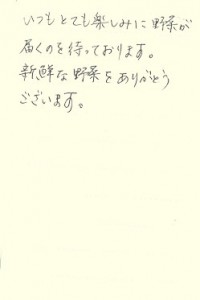 いつもとても楽しみに野菜が
届くのを待っております。
新鮮な野菜をありがとう
ございます。